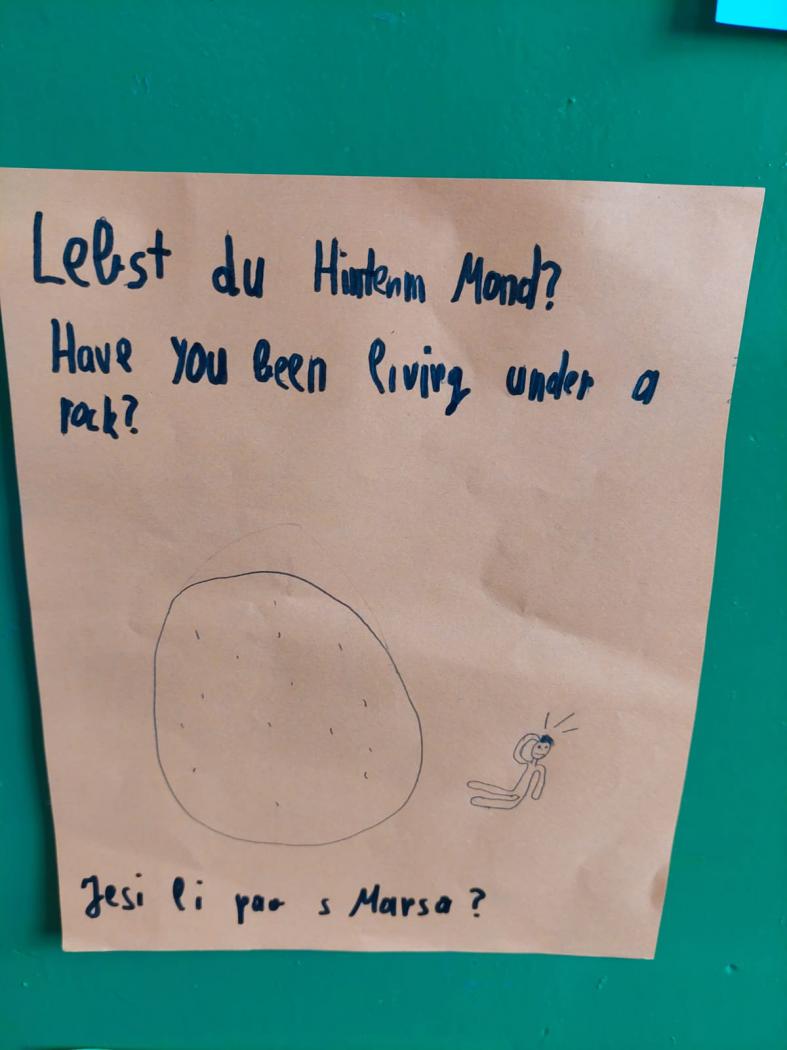 Lebst du Hintenm Mond?
Have you been living under a
rock?
Jesi li pao s Marsa?